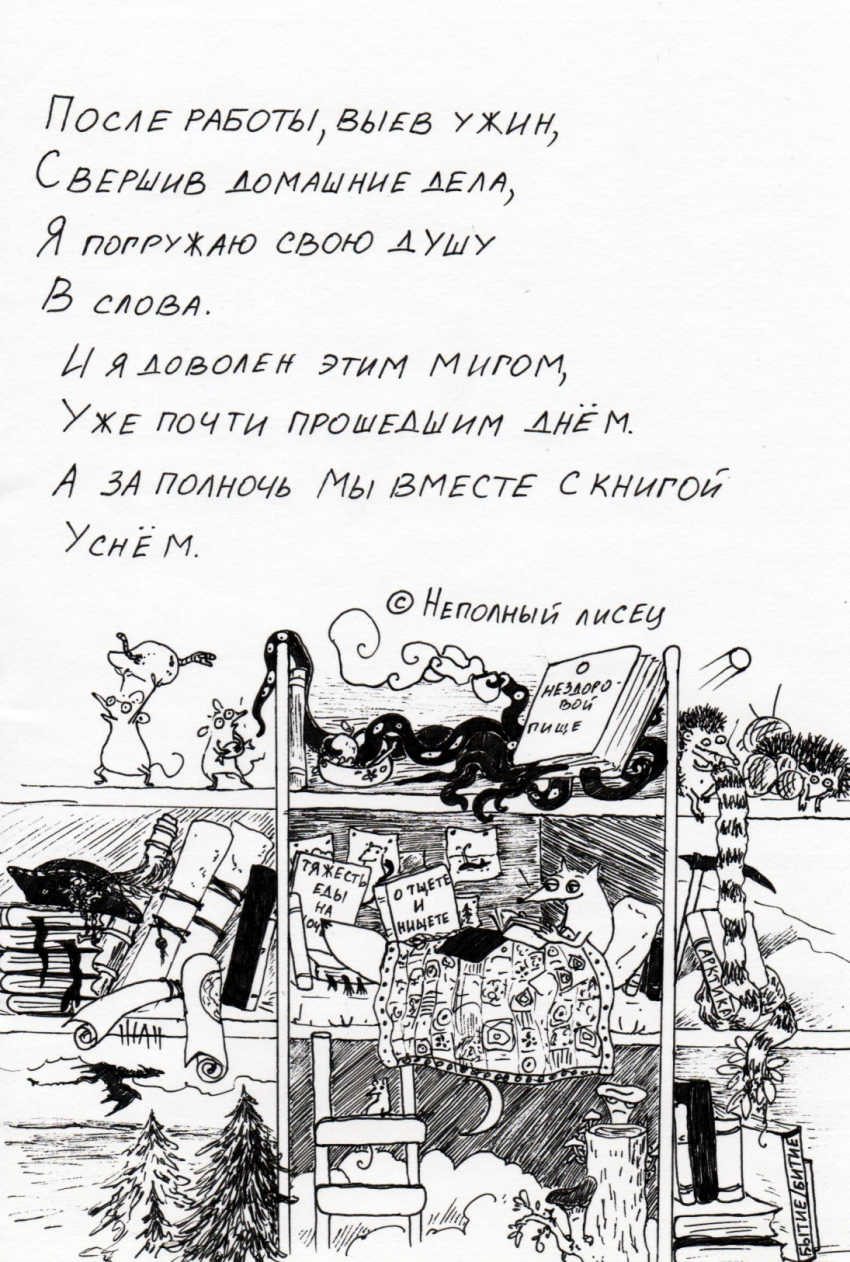 После работы, выев ужин,
Свершив домашние дела,
Я погружаю свою душу
В слова.
И я доволен этим мигом,
Уже почти прошедшим днём.
А за полночь мы вместе с книгой
Уснём.
© Неполный лисец
О
НЕЗДОРО-
ВОЙ
ПИЩЕ
ТЯЖЕСТЬ
ЕДЫ
НА
О ТЩЕТЕ
И
НИЩЕТЕ
АРКТИКА
БЫТИЕ/БИТИЕ